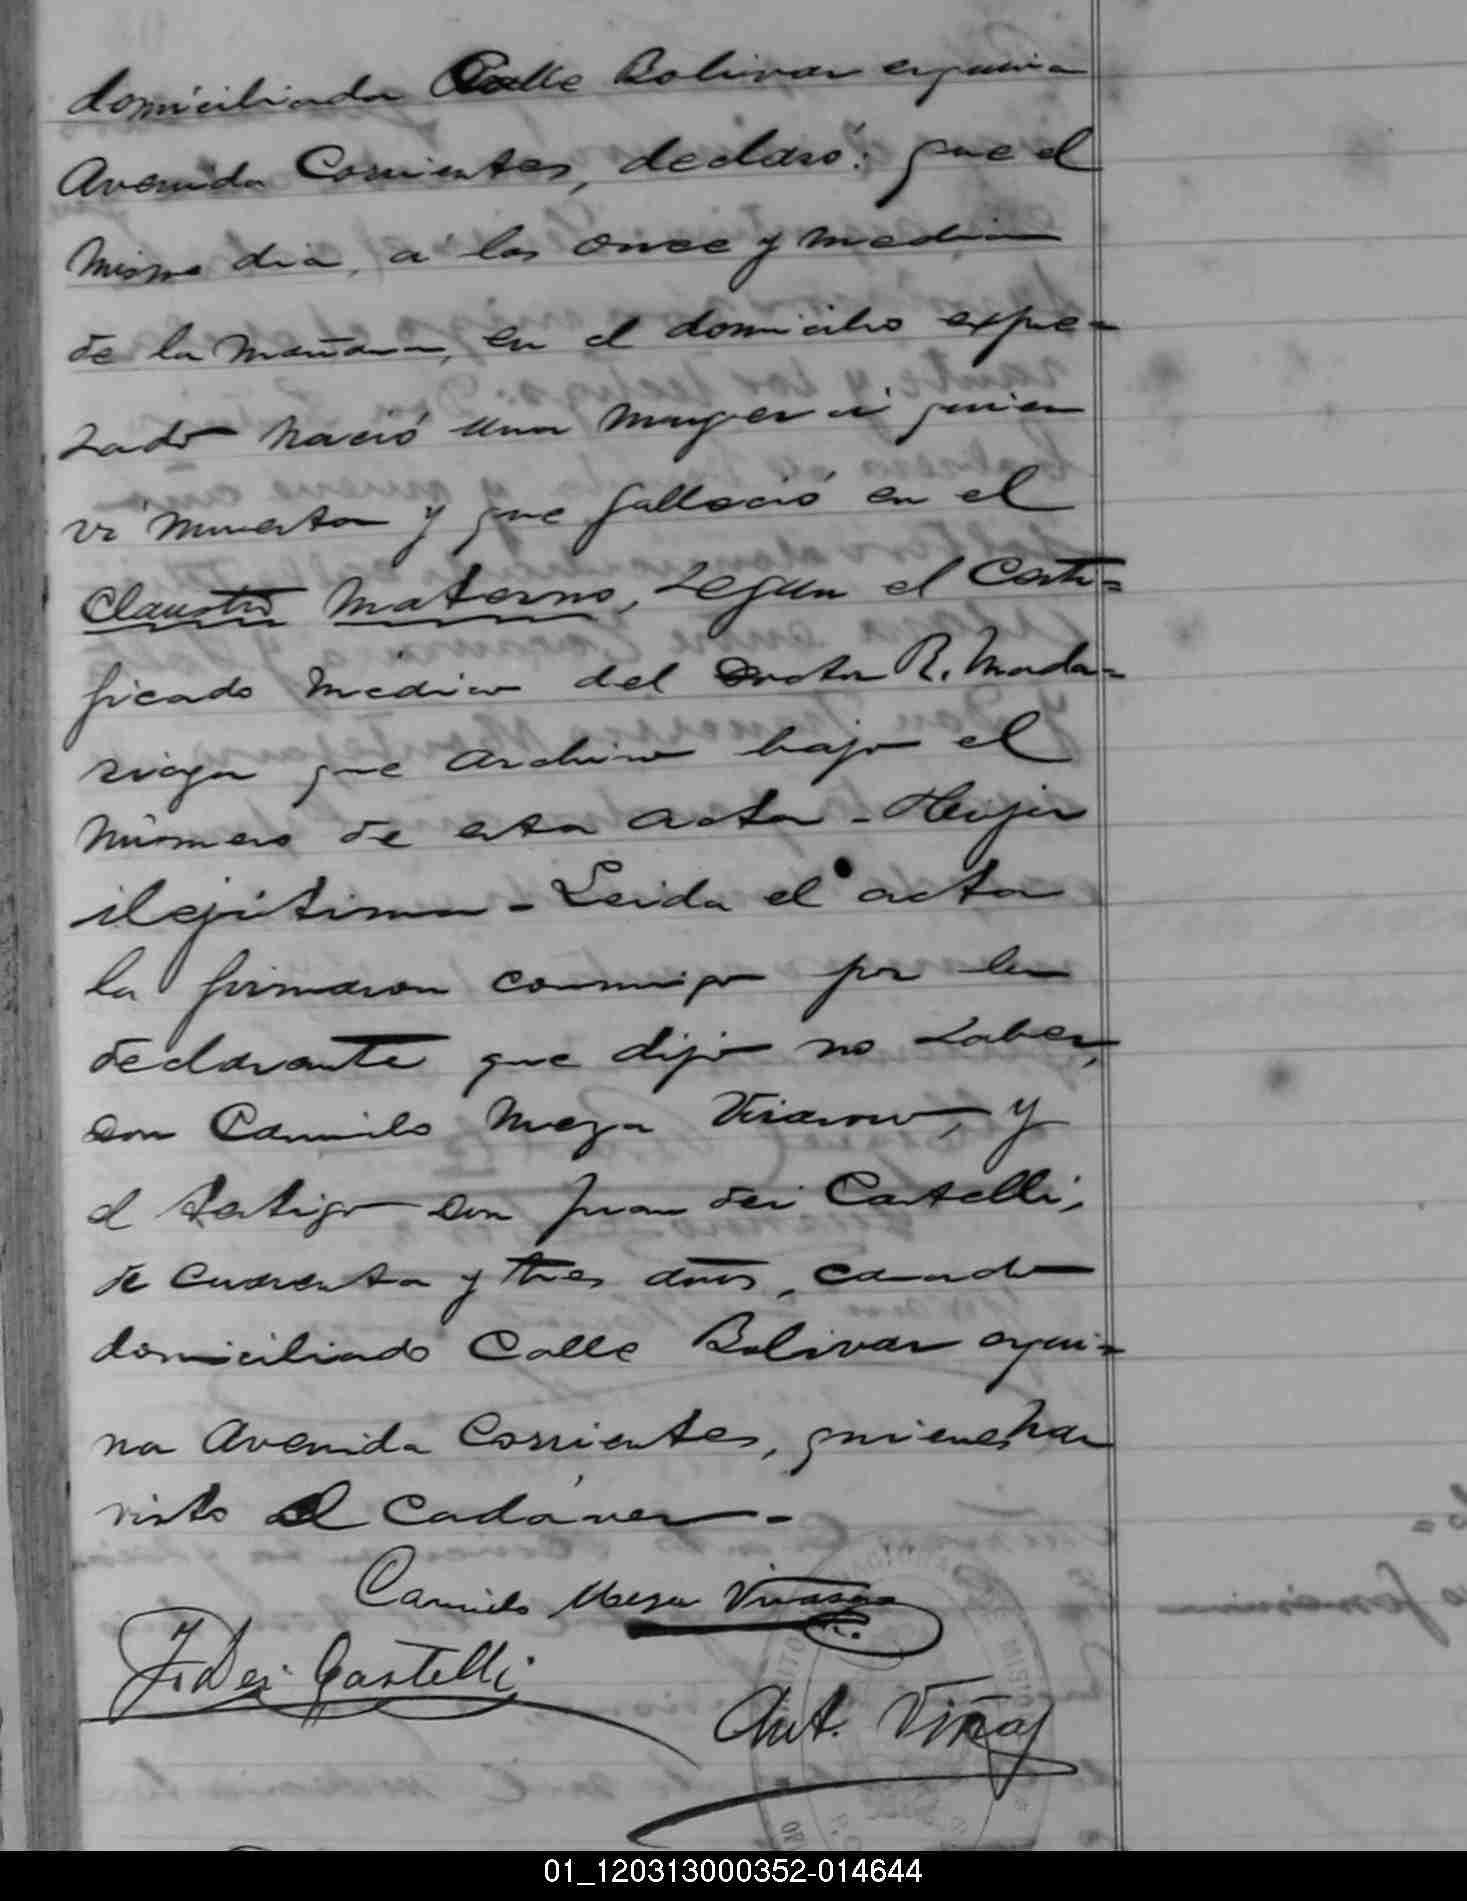 domiciliada Calle Bolivar esquina
Avenida Corrientes, declaró: que el
mismo dia, á las once y media
de la mañana, en el domicilio expre-
sado nació una muger á quien
vi muerta y que falleció en el
Claustro Materno, segun el Certi=
ficado médico del Doctor R. Mada=
riaga que archivo bajo el
número de esta acta - Es hija
ilegitima - Leida el acta
la firmaron conmigo por la
declarante que dijo no saber,
don Camilo Meza Vivasco, y
el testigo don Juan Dei Castelli,
de cuarenta y tres años, casado
domiciliado Calle Bolivar esqui=
na Avenida Corrientes, quienes han
visto el cadáver -
Camilo Meza Vivasco
J. Dei Castelli
Ant. Viñas
01_120313000352-014644